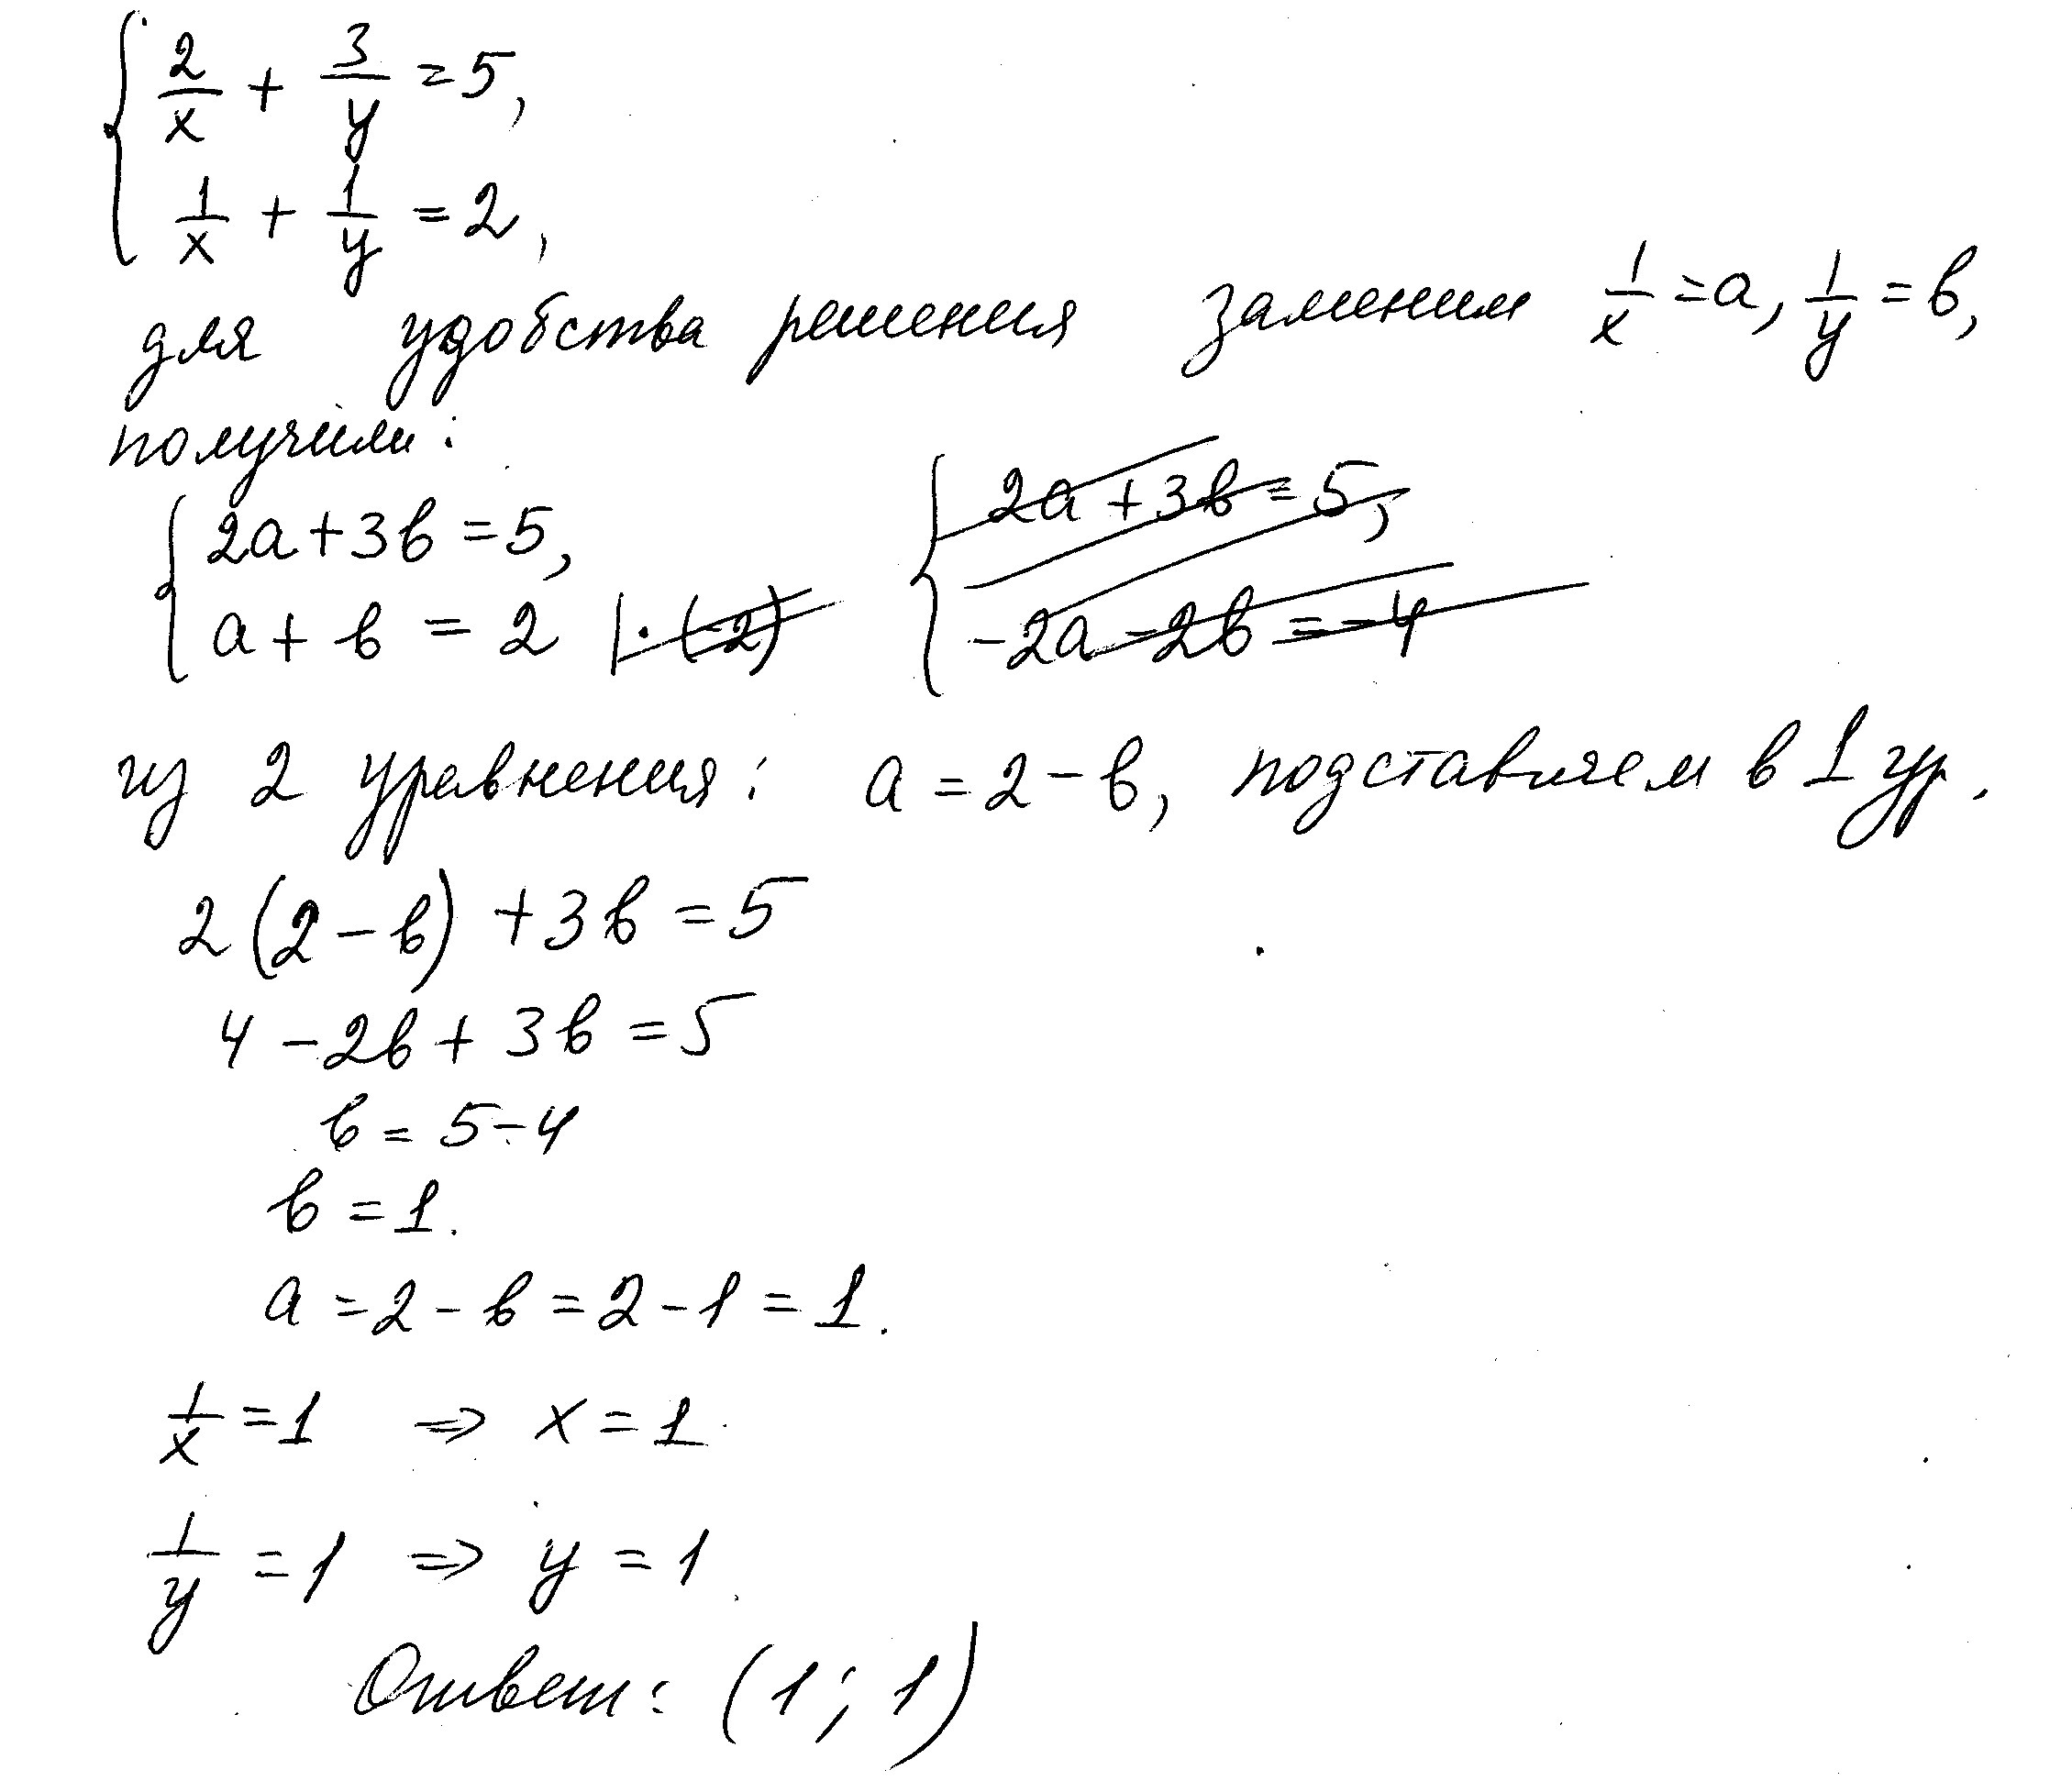 2/x + 3/y = 5,
1/x + 1/y = 2,
для удобства решения заменим 1/x = a, 1/y = b,
получили:
2a + 3b = 5, 2a + 3b = 5,
a + b = 2 | · (-2) -2a - 2b = -4
из 2 уравнения: a = 2 - b, подставляем в 1 ур.
2(2 - b) + 3b = 5
4 - 2b + 3b = 5
b = 5 - 4
b = 1.
a = 2 - b = 2 - 1 = 1.
1/x = 1 ⇒ x = 1
1/y = 1 ⇒ y = 1
Ответ: (1; 1)